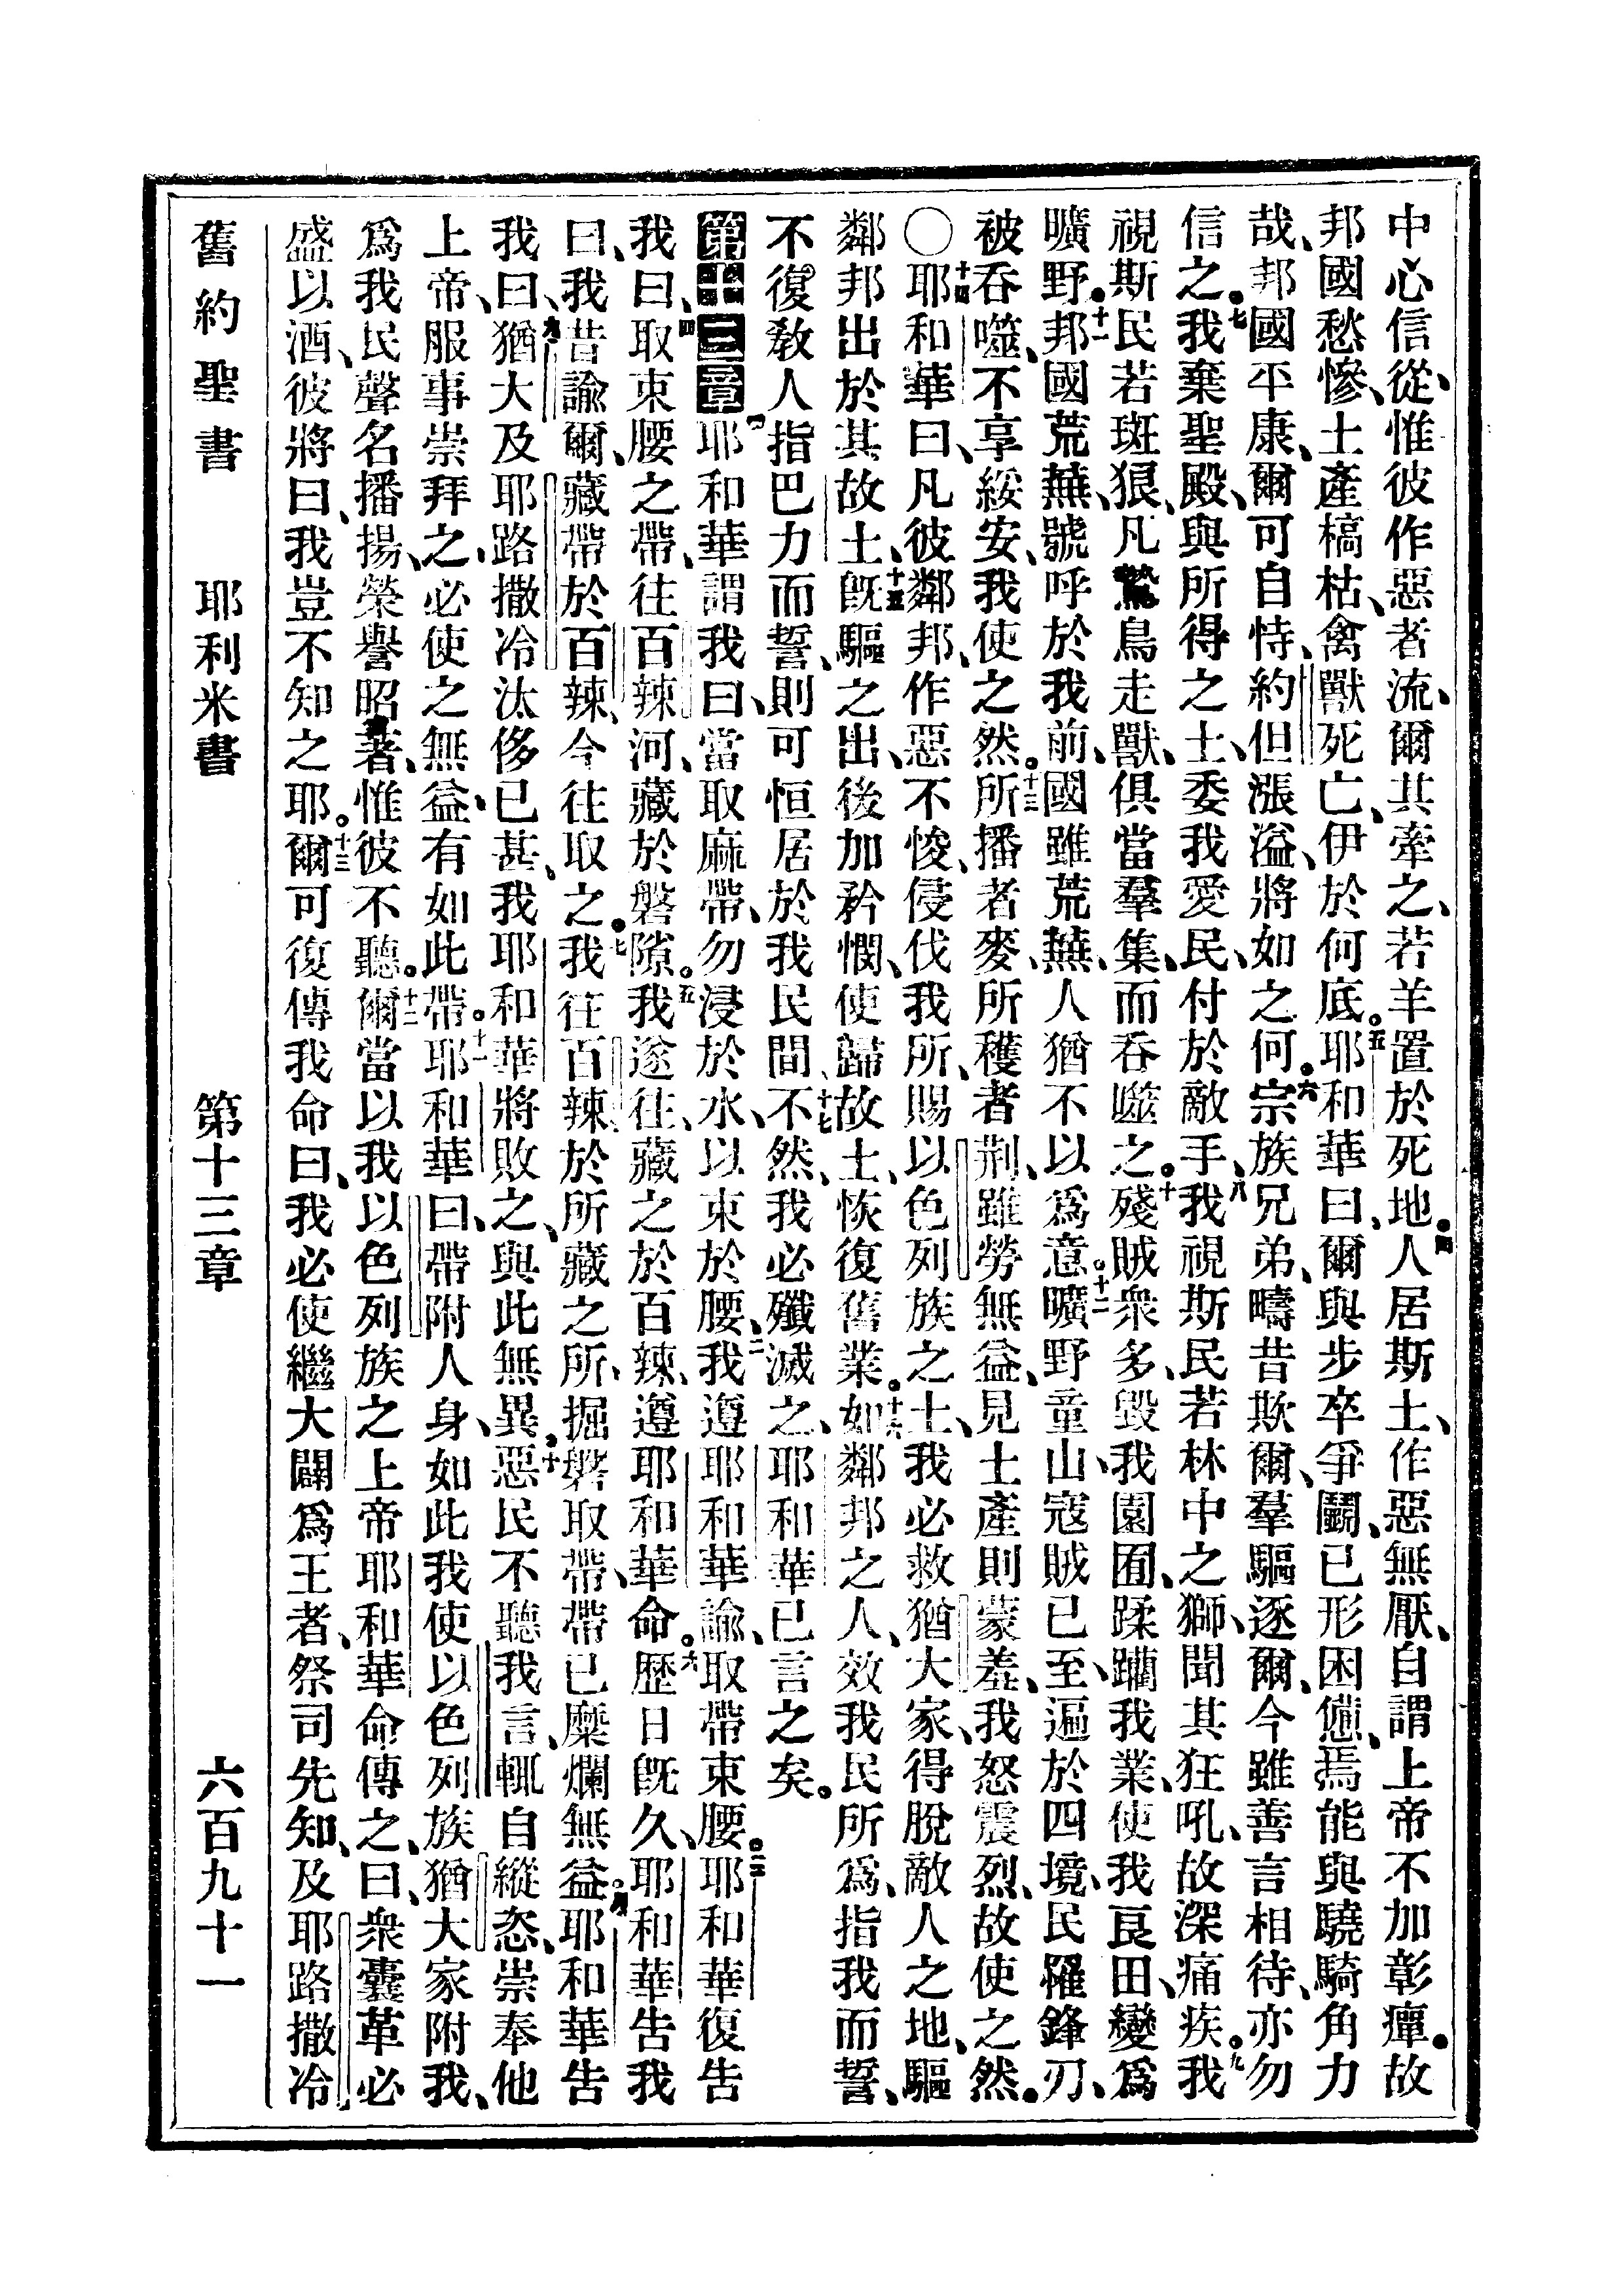 中心信從、惟彼作惡者流、爾其牽之、若羊置於死地。四人居斯土、作惡無厭、自謂上帝不加彰癉。故
邦國愁慘、土產槁枯、禽獸死亡、伊於何底。五耶和華曰、爾與步卒爭鬬、已形困憊、焉能與驍騎角力
哉、邦國平康、爾可自恃、約但漲溢、將如之何。六宗族兄弟、疇昔欺爾、羣驅逐爾、今雖善言相待、亦勿
信之。七我棄聖殿、與所得之士、委我愛民、付於敵手、八我視斯民若林中之獅、聞其狂吼、故深痛疾。九我
視斯民若斑狼、凡鷙鳥走獸、俱當羣集、而吞噬之。十殘賊衆多、毀我園囿、蹂躪我業、使我良田、變爲
曠野。十一邦國荒蕪、號呼於我前、國雖荒蕪、人猶不以爲意。十二曠野童山、寇賊已至、遍於四境、民罹鋒刃、
被吞噬、不享綏安、我使之然。十三所播者麥、所穫者荆、雖勞無益、見土產則蒙羞、我怒震烈、故使之然。
〇十四耶和華曰、凡彼鄰邦、作惡不悛、侵伐我所、賜以色列族之土、我必救猶大家、得脫敵人之地、驅
鄰邦出於其故土、十五旣驅之出、後加矜憫、使歸故土、恢復舊業。十六如鄰邦之人、效我民所爲、指我而誓、
不復教人指巴力而誓、則可恒居於我民間、十七不然、我必殲滅之、耶和華已言之矣。
第十三章一耶和華謂我曰、當取麻帶、勿浸於水、以束於腰、二我遵耶和華諭、取帶束腰。三耶和華復告
我曰、四取束腰之帶、往百辣河、藏於磐隙。五我遂往、藏之於百辣、遵耶和華命。六歷日旣久、耶和華告我
曰、我昔諭爾、藏帶於百辣、今往取之。七我往百辣、於所藏之所、掘磐取帶、帶已糜爛無益。八耶和華告
我曰、九猶大及耶路撒冷汰侈已甚、我耶和華將敗之、與此無異。十惡民不聽我言、輒自縱恣、崇奉他
上帝、服事崇拜之、必使之無益、有如此帶。十一耶和華曰、帶附人身、如此我使以色列族猶大家附我、
爲我民、聲名播揚、榮譽昭著、惟彼不聽。十二爾當以我以色列族之上帝耶和華命傳之、曰、衆囊革必
盛以酒、彼將曰、我豈不知之耶。十三爾可復傳我命曰、我必使繼大闢爲王者、祭司先知、及耶路撒冷
舊約聖書　耶利米書　第十三章　六百九十一